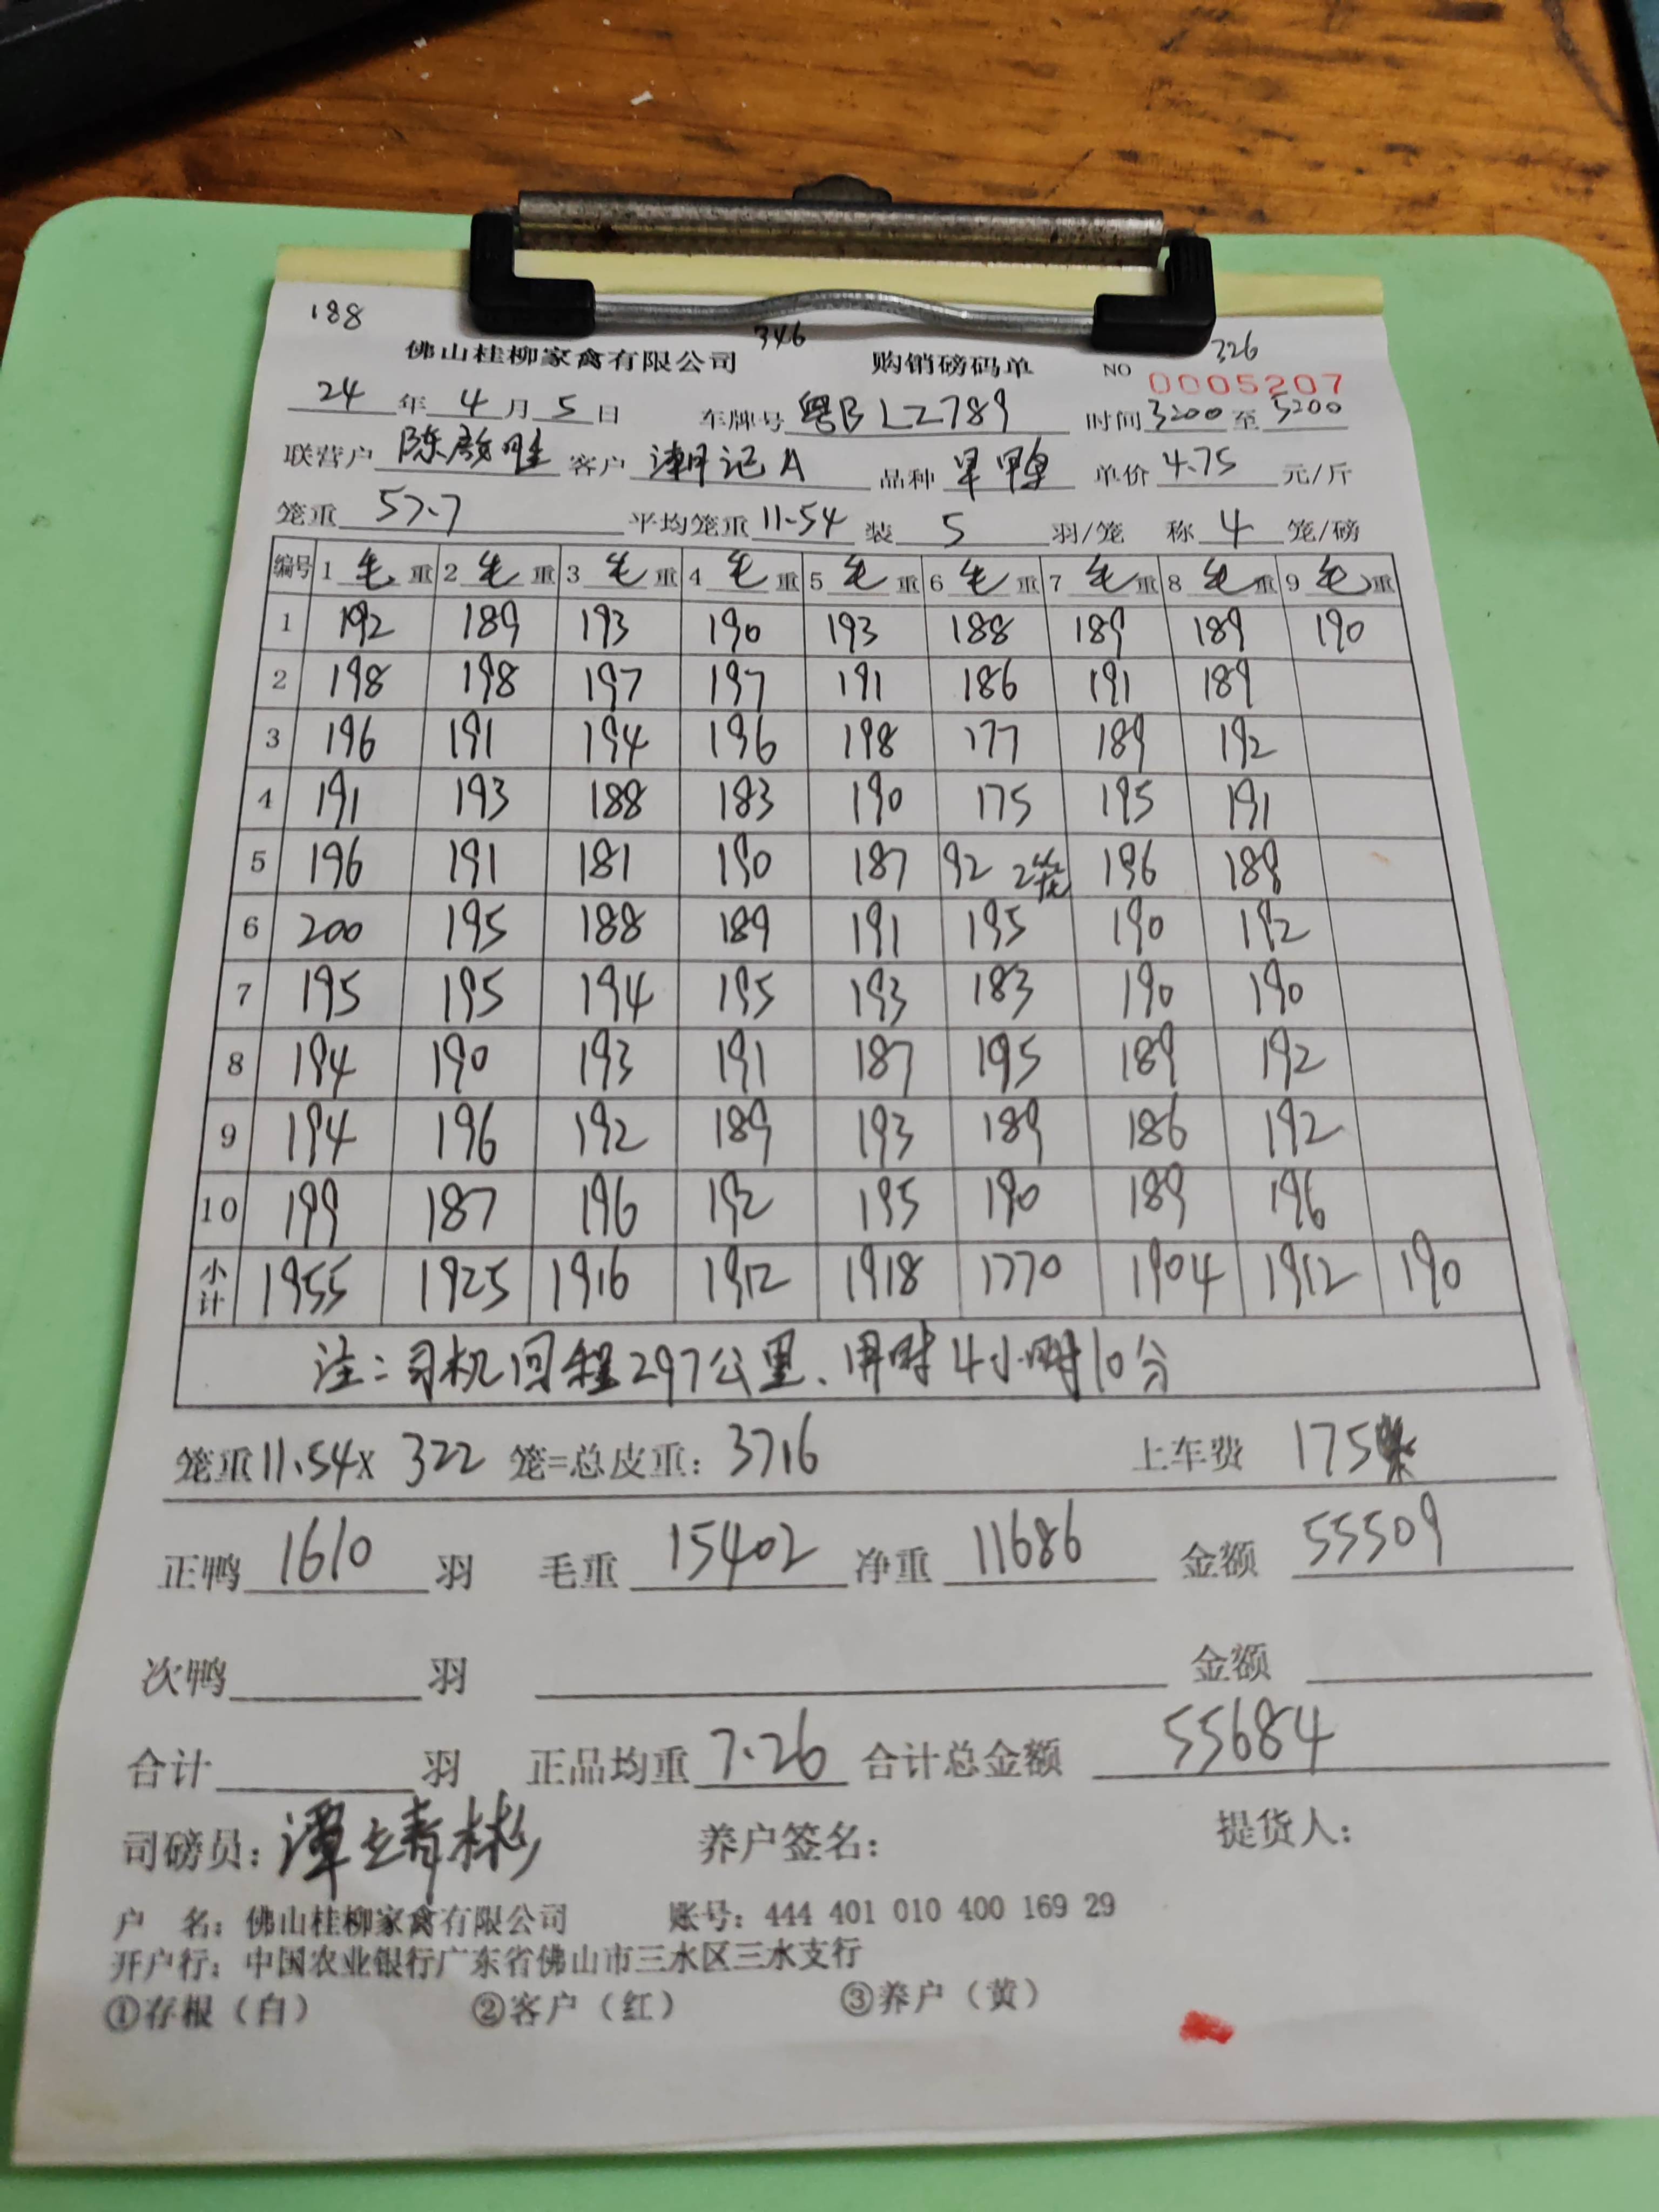 188 346 326
佛山桂柳家禽有限公司 购销磅码单 NO 0005207
24年4月5日 车牌号粤BLZ789 时间3200至5200
联营户陈 客户潮记A 品种旱鸭 单价4.75元/斤
笼重57.7 平均笼重11.54装5羽/笼 称4笼/磅
编号 1毛重 2毛重 3毛重 4毛重 5毛重 6毛重 7毛重 8毛重 9毛重
1 192 189 193 190 193 188 189 189 190
2 198 198 197 197 191 186 191 189
3 196 191 194 196 198 177 189 192
4 191 193 188 183 190 175 195 191
5 196 191 181 190 187 92 2笼 196 189
6 200 195 188 189 191 195 190 192
7 195 195 194 195 193 183 190 190
8 194 190 193 191 187 195 189 192
9 194 196 192 189 193 189 186 192
10 199 187 196 192 195 190 189 196
小计 1955 1925 1916 1912 1918 1770 1904 1912 190
注:司机回程297公里、用时4小时10分
笼重11.54x 322 笼=总皮重:3716 上车费 175
正鸭1610羽 毛重15402净重11686 金额55509
次鸭 羽 金额
合计 羽 正品均重7.26合计总金额55684
司磅员:谭靖彬 养户签名: 提货人:
户 名:佛山桂柳家禽有限公司 账号:444 401 010 400 169 29
开户行:中国农业银行广东省佛山市三水区三水支行
①存根(白) ②客户(红) ③养户(黄)